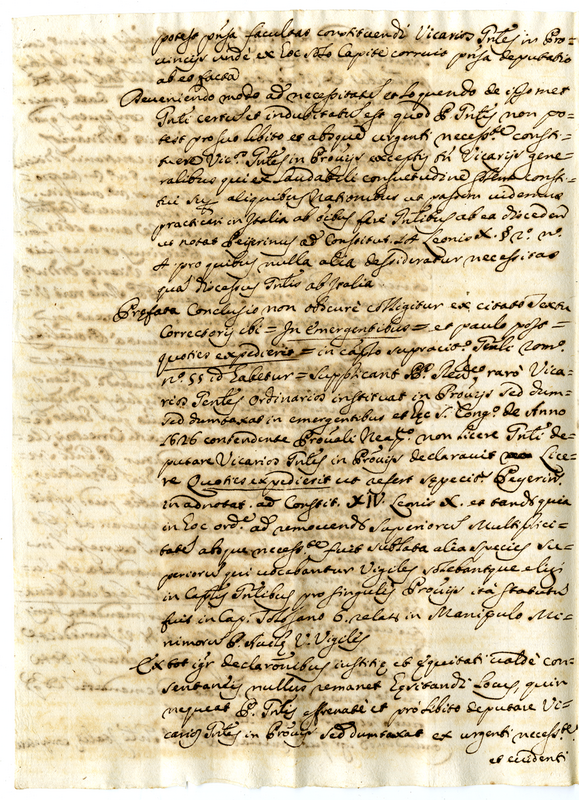 potest pñsa facultas constituendi Vicarios Gñles in Pro=
vincijs undè ex hoc solo Capite corruit pñsa deputatio
ab eo facta
Deveniendo modo ad necessitatẽ et loquendo de ipsomet
Gñli certũ et indubitatũ est quod P. Gñlis non po=
test pro suo libito et absque urgenti necessᵗᵉ consti=
tuere Vicᵒˢ Gñles in Provijs exceptis tñ Vicarijs gene=
ralibus qui ex laudabili consuetudine consti=
tui aliquibus Nationibus ut passim videmus
practicari in Italia ab oibus fere Gñlibus ab ea disceden
ut notat Pegrinus ad Constitut. Leonis X. § 2.º nº
4 pro quibus nulla alia dessideratur necessitas
quã discessus Gñlis ab Italia
Prefata Conclusio non obscurè colligitur ex citato Textu
Correctorij ibi = In emergentibus = et paulo post =
quoties expedierit = in casto supracitᵗᵒ Gñli Romº
nº 55 id habetur = Supplicant Pᵉ. raró Vica=
rios Gñles Ordinarios instituat in Provijs sed dum=
sed dumtaxat in emergentibus et hec S. Congº de Anno
1626 contendente Provali Neapº. non licere Gñli de=
putare Vicarios Gñles in Provijs declaravit Lice=
re Quoties expedierit ut refert sepecitº Pegrinº
in adnotat. ad Constit. XIV Leonis X. et tandẽ quia
in hoc ordᵉ ad removendã Superiorũ Multiplici=
tatẽ absque necessᵗᵉ fuit sublata alia species Su=
periorũ qui vocebantur Vigiles solebantque eligi
in Caplis Gñlibus pro singulis Provijs ità statutũ
fuit in Cap. Tolosano 6. relatº in Manipulo Mi=
nimorũ P. Vº Vigiles
Ex tot igr declarõnibus iustitiȩ et ȩquitati valdè con=
sentaneis nullus remanet hȩsitandi Locus, quin
nequeat P. Gñlis effrenatè et pro libito deputare Vi=
carios Gñles in Provijs sed dumtaxat ex urgenti necessᵗᵉ
et evidenti